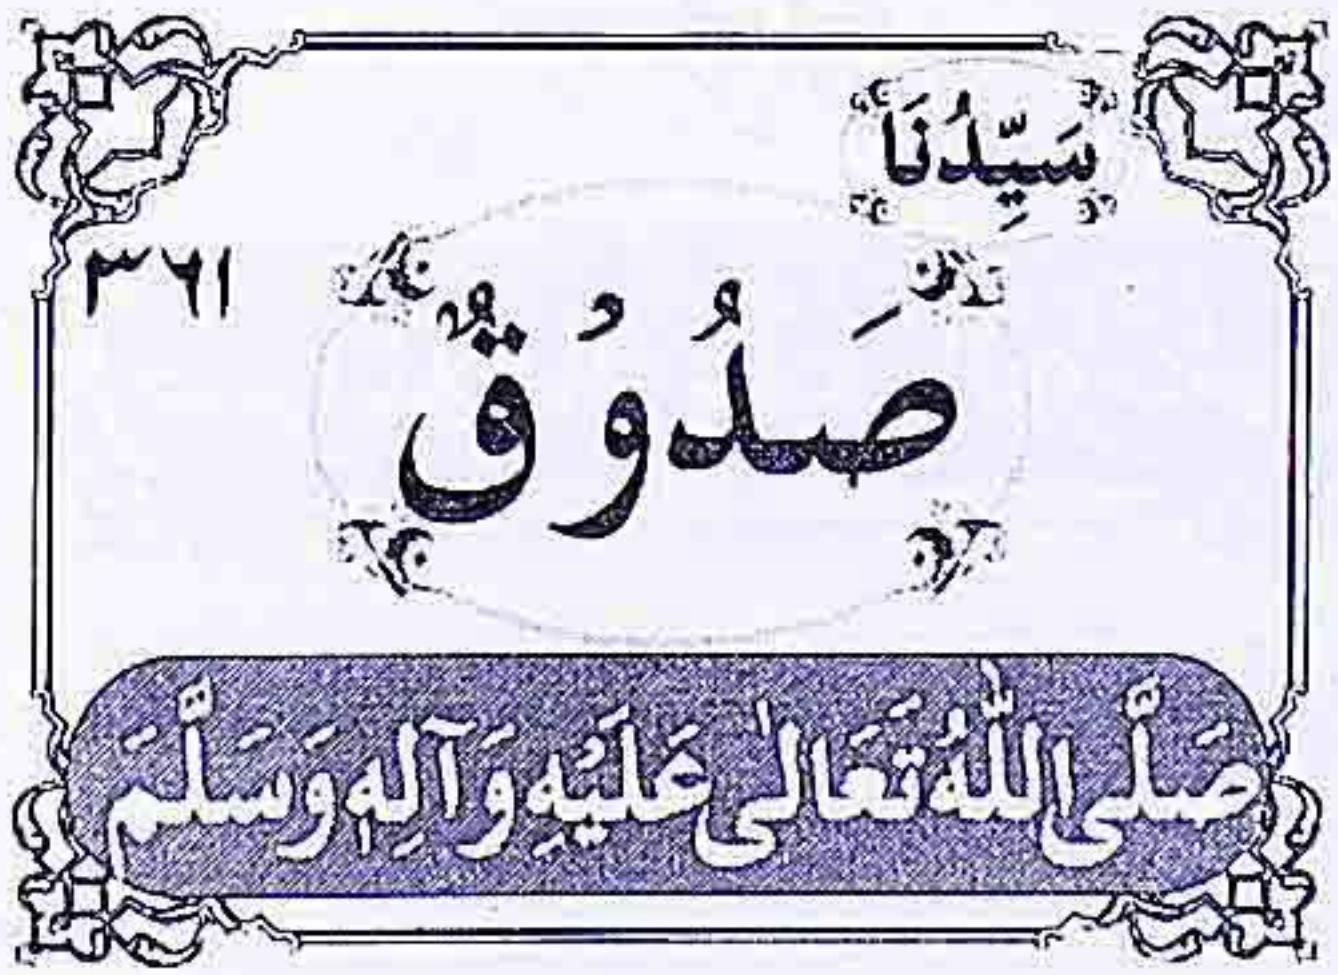 سَيِّدُنَا
٣٦١
صَدُوُقٌ
صَلَّى اللّٰهُ تَعَالىٰ عَلَيْهِ وَآلِهٖ وَسَلَّمَ